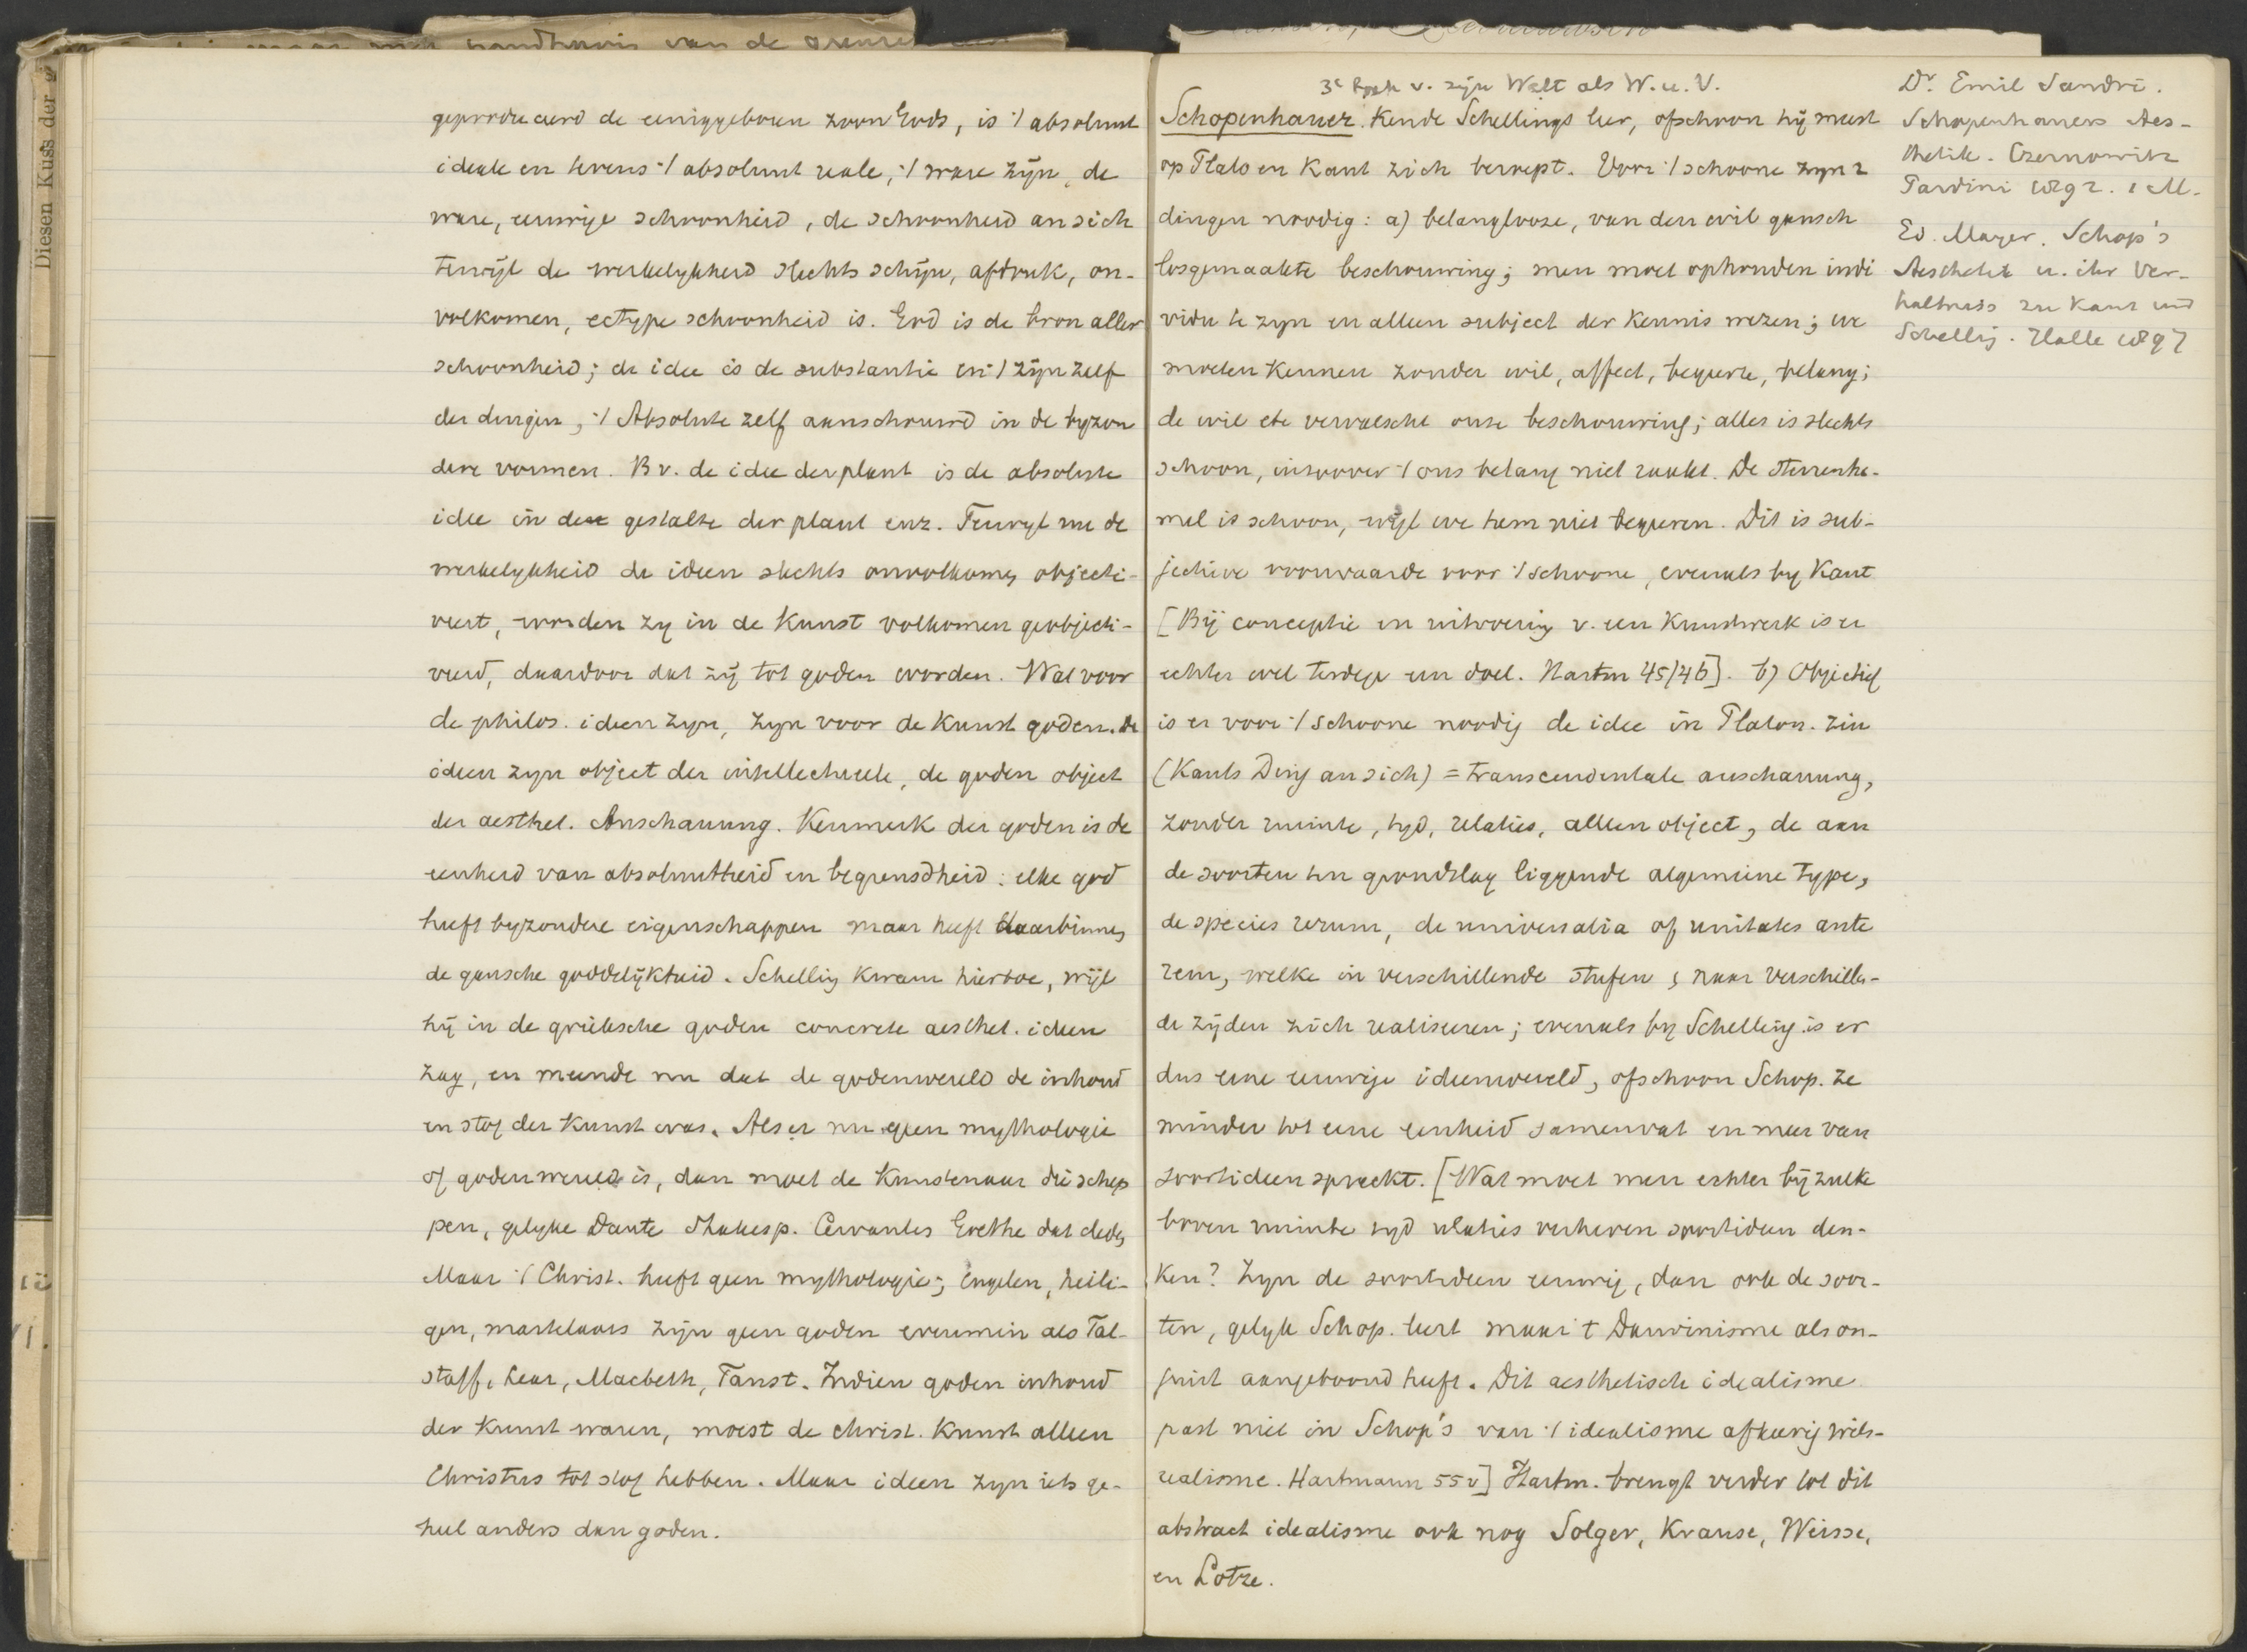 maar met handhavis van de grenzen
Diesen Kuss der
geproduceerd de eeniggeboren zoon Gods, is ·/ absoluut
ideale en tevens ·/ absoluut reale, ·/ ware zijn, de
ware, eeuwige schoonheid, de schoonheid an sich
terwijl de werkelykheid slechts schijn, afdruk, on-
volkomen, ectype schoonheid is. God is de bron aller
schoonheid; de idee is de substantie en ·/ zijn zelf
der dingen, ·/ Absolute zelf aanschouwd in de byzon
dere vormen. Bv. de idee der plant is de absolute
idee in de gestalte der plant enz. Terwyl nu de
werkelykheid de ideen slechts onvolkomen objecti-
veert, worden zy in de Kunst volkomen geobjecti-
veerd, daardoor dat zij tot goden worden. Wat voor
de philos. ideen zyn, zyn voor de Kunst goden. De
ideen zyn object der intellectueele, de goden object
der aesthet. Anschauung. Kenmerk der goden is de
eenheid van absoluutheid en begrensdheid: elke god
heeft byzondere eigenschappen maar heeft daarbinnen
de gansche goddelijkheid. Schelling kwam hiertoe, wijl
hij in de grieksche goden concrete aesthet. ideen
zag, en meende nu dat de godenwereld de inhoud
en stof der Kunst was. Als er nu geen mythologie
of godenwereld is, dan moet de Kunstenaar die schep
pen, gelyke Dante Shakesp. Cervantes Goethe dat deden
Maar ·/ Christ. heeft geen mythologie; engelen, heili-
gen, martelaars zijn geen goden evenmin als Fal-
staff, Lear, Macbeth, Faust. Indien goden inhoud
der Kunst waren, moest de christ. Kunst alleen
Christus tot stof hebben. Maar ideen zyn iets ge-
heel anders dan goden.
3e Boek v. zijn Welt als W. u. V.
Schopenhauer. Kende Schellings leer, ofschoon hij meest
op Plato en Kant zich beroept. Voor ·/ schoone zyn 2
dingen noodig: a) belanglooze, van den wil gansch
losgemaakte beschouwing; men moet ophouden indi
vidu te zyn en alleen subject der Kennis wezen; we
moeten Kennen zonder wil, affect, begeerte, belang;
de wil etc vervalscht onze beschouwing; alles is slechts
schoon, inzoover ·/ ons belang niet raakt. De sterrenhe-
mel is schoon, wijl we hem niet begeeren. Dit is sub-
jectieve voorwaarde voor ·/ schoone, evenals by Kant
[Bij conceptie en uitvoering v. een Kunstwerk is er
echter wel terdege een doel. Hartm 45/46]. b) Objectief
is er voor ·/ schoone noodig de idee in Platon. zin
(Kants Ding an sich) = transcendentale anschauung,
zonder ruimte, tyd, relaties, alleen object, de aan
de soorten ten grondslag liggende algemeene type,
de species rerum, de universalia of unitates ante
rem, welke in verschillende stufen & naar verschillen-
de zijden zich realiseeren; evenals by Schelling is er
dus eene eeuwige ideenwereld, ofschoon Schop. ze
minder tot eene eenheid samenvat en meer van
soortideen spreekt. [Wat moet men echter bij zulke
boven ruimte tyd relaties verheven soortideen den-
Ken? Zyn de soortideen eeuwig, dan ook de soor-
ten, gelyk Schop. leert maar 't Darwinisme als on-
juist aangetoond heeft. Dit aesthetisch idealisme
past niet in Schop's van ·/ idealisme afkeerig wils-
realisme. Hartmann 55v] Hartm. brengt verder tot dit
abstract idealisme ook nog Solger, Krause, Weisse,
en Lotze.
Dr. Emil Sandri.
Schopenhauers Aes-
thetik. Czernowitz
Pardini 1892. 1 M.
Ed. Mayer. Schop's
Aesthetik u. ihr Ver-
haltniss zu Kant und
Schelling. Halle 1897